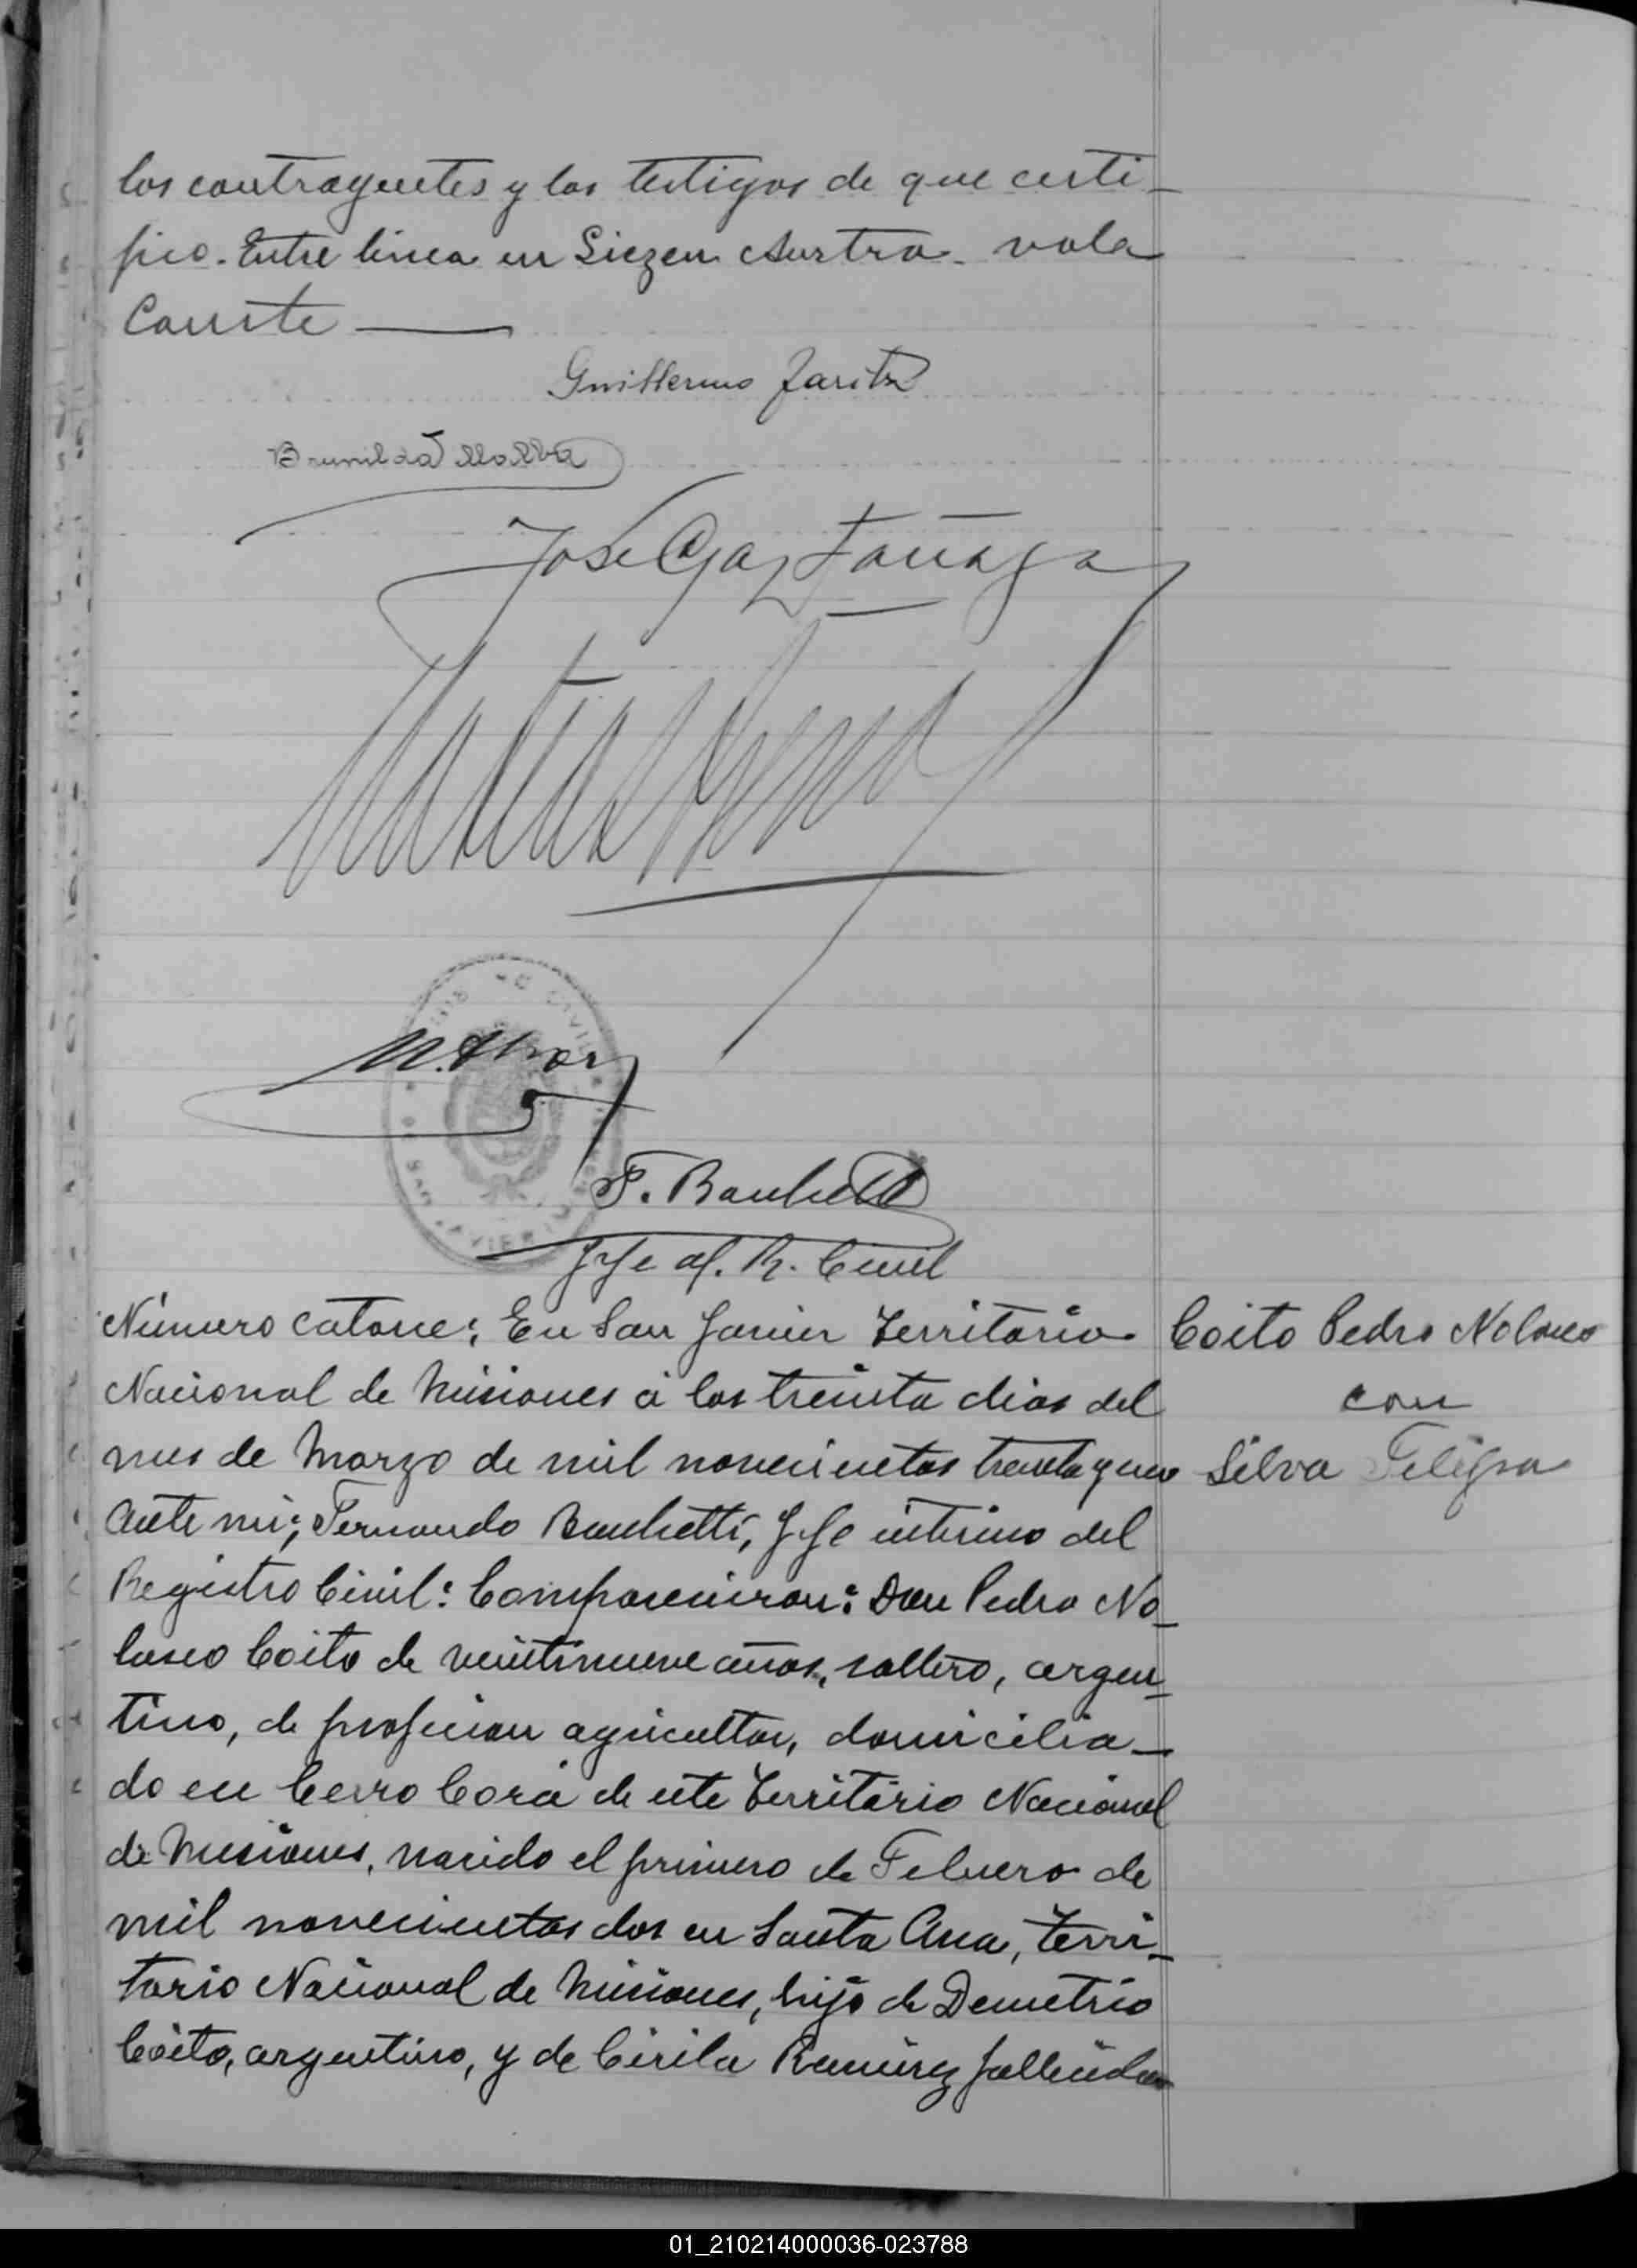 los contrayentes y los testigos de que certi-
fico. Entre linea en Liezen Austra. vale
Conste
Guillermo Zaritz
Brunilda Malva
José Gaztañaga
REGISTRO CIVIL SAN JAVIER
F. Banchetti
Jefe of. R. Civil
Número catorce: En San Javier Territorio
Coito Pedro Nolasco
Nacional de Misiones á los treinta dias del
con
mes de Marzo de mil novecientos treinta y uno
Silva Feligra
Ante mi; Fernando Banchetti, Jefe interino del
Registro Civil: Comparecieron: Don Pedro No-
lasco Coito de veintinueve años, soltero, argen-
tino, de profesion agricultor, domicilia-
do en Cerro Corá de este Territorio Nacional
de Misiones, nacido el primero de Febrero de
mil novecientos dos en Santa Ana, Terri-
torio Nacional de Misiones, hijo de Demetrio
Coito, argentino, y de Cirila Ramirez fallecida